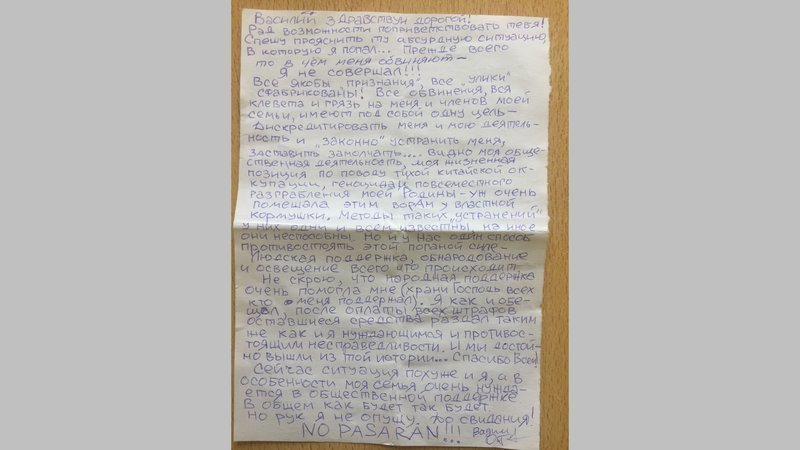 Василий здравствуй дорогой!
Рад возможности поприветствовать тебя!
Спешу прояснить ту абсурдную ситуацию,
в которую я попал... Прежде всего
то в чём меня обвиняют -
Я не совершал!!!
Все якобы "признания", все "улики"
сфабрикованы! Все обвинения, вся
клевета и грязь на меня и членов моей
семьи, имеют под собой одну цель -
Дискредитировать меня и мою деятель-
ность и "законно" устранить меня,
заставить замолчать.... Видно моя обще-
ственная деятельность, моя жизненная
позиция по поводу тихой китайской ок-
купации, геноцида и повсеместного
разграбления моей Родины - уж очень
помешала этим ворам у властной
кормушки. Методы таких "устранений"
у них одни и всем известны, на иное
они неспособны. Но и у нас один способ
противостоять этой поганой силе -
Людская поддержка, обнародование
и освещение всего что происходит
Не скрою, что народная поддержка
очень помогла мне (храни Господь всех
кто меня поддержал). Я как и обе-
щал, после оплаты всех штрафов
оставшиеся средства раздал таким
же как и я нуждающимся и противос-
тоящим несправедливости. И мы достой-
но вышли из той истории... Спасибо Всем!
Сейчас ситуация похуже и я, а в
особенности моя семья очень нужда-
ется в общественной поддержке
В общем как будет так будет.
Но рук я не опущу. До свидания!
NO PASARAN!!! Вадим